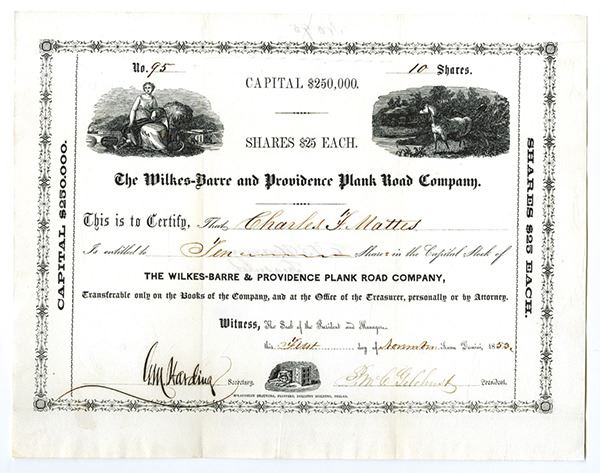 No. 95
10 Shares.
CAPITAL $250,000.
SHARES $25 EACH.
The Wilkes-Barre and Providence Plank Road Company.
This is to Certify, That Charles F. Mattes
Is entitled to Ten Shares in the Capital Stock of
THE WILKES-BARRE & PROVIDENCE PLANK ROAD COMPANY,
Transferable only on the Books of the Company, and at the Office of the Treasurer, personally or by Attorney.
Witness, The Seal of the President and Managers
this First day of November Anno Domini, 1853.
Harding Secretary.
Gilchrist President.
CAPITAL $250,000.
SHARES $25 EACH.